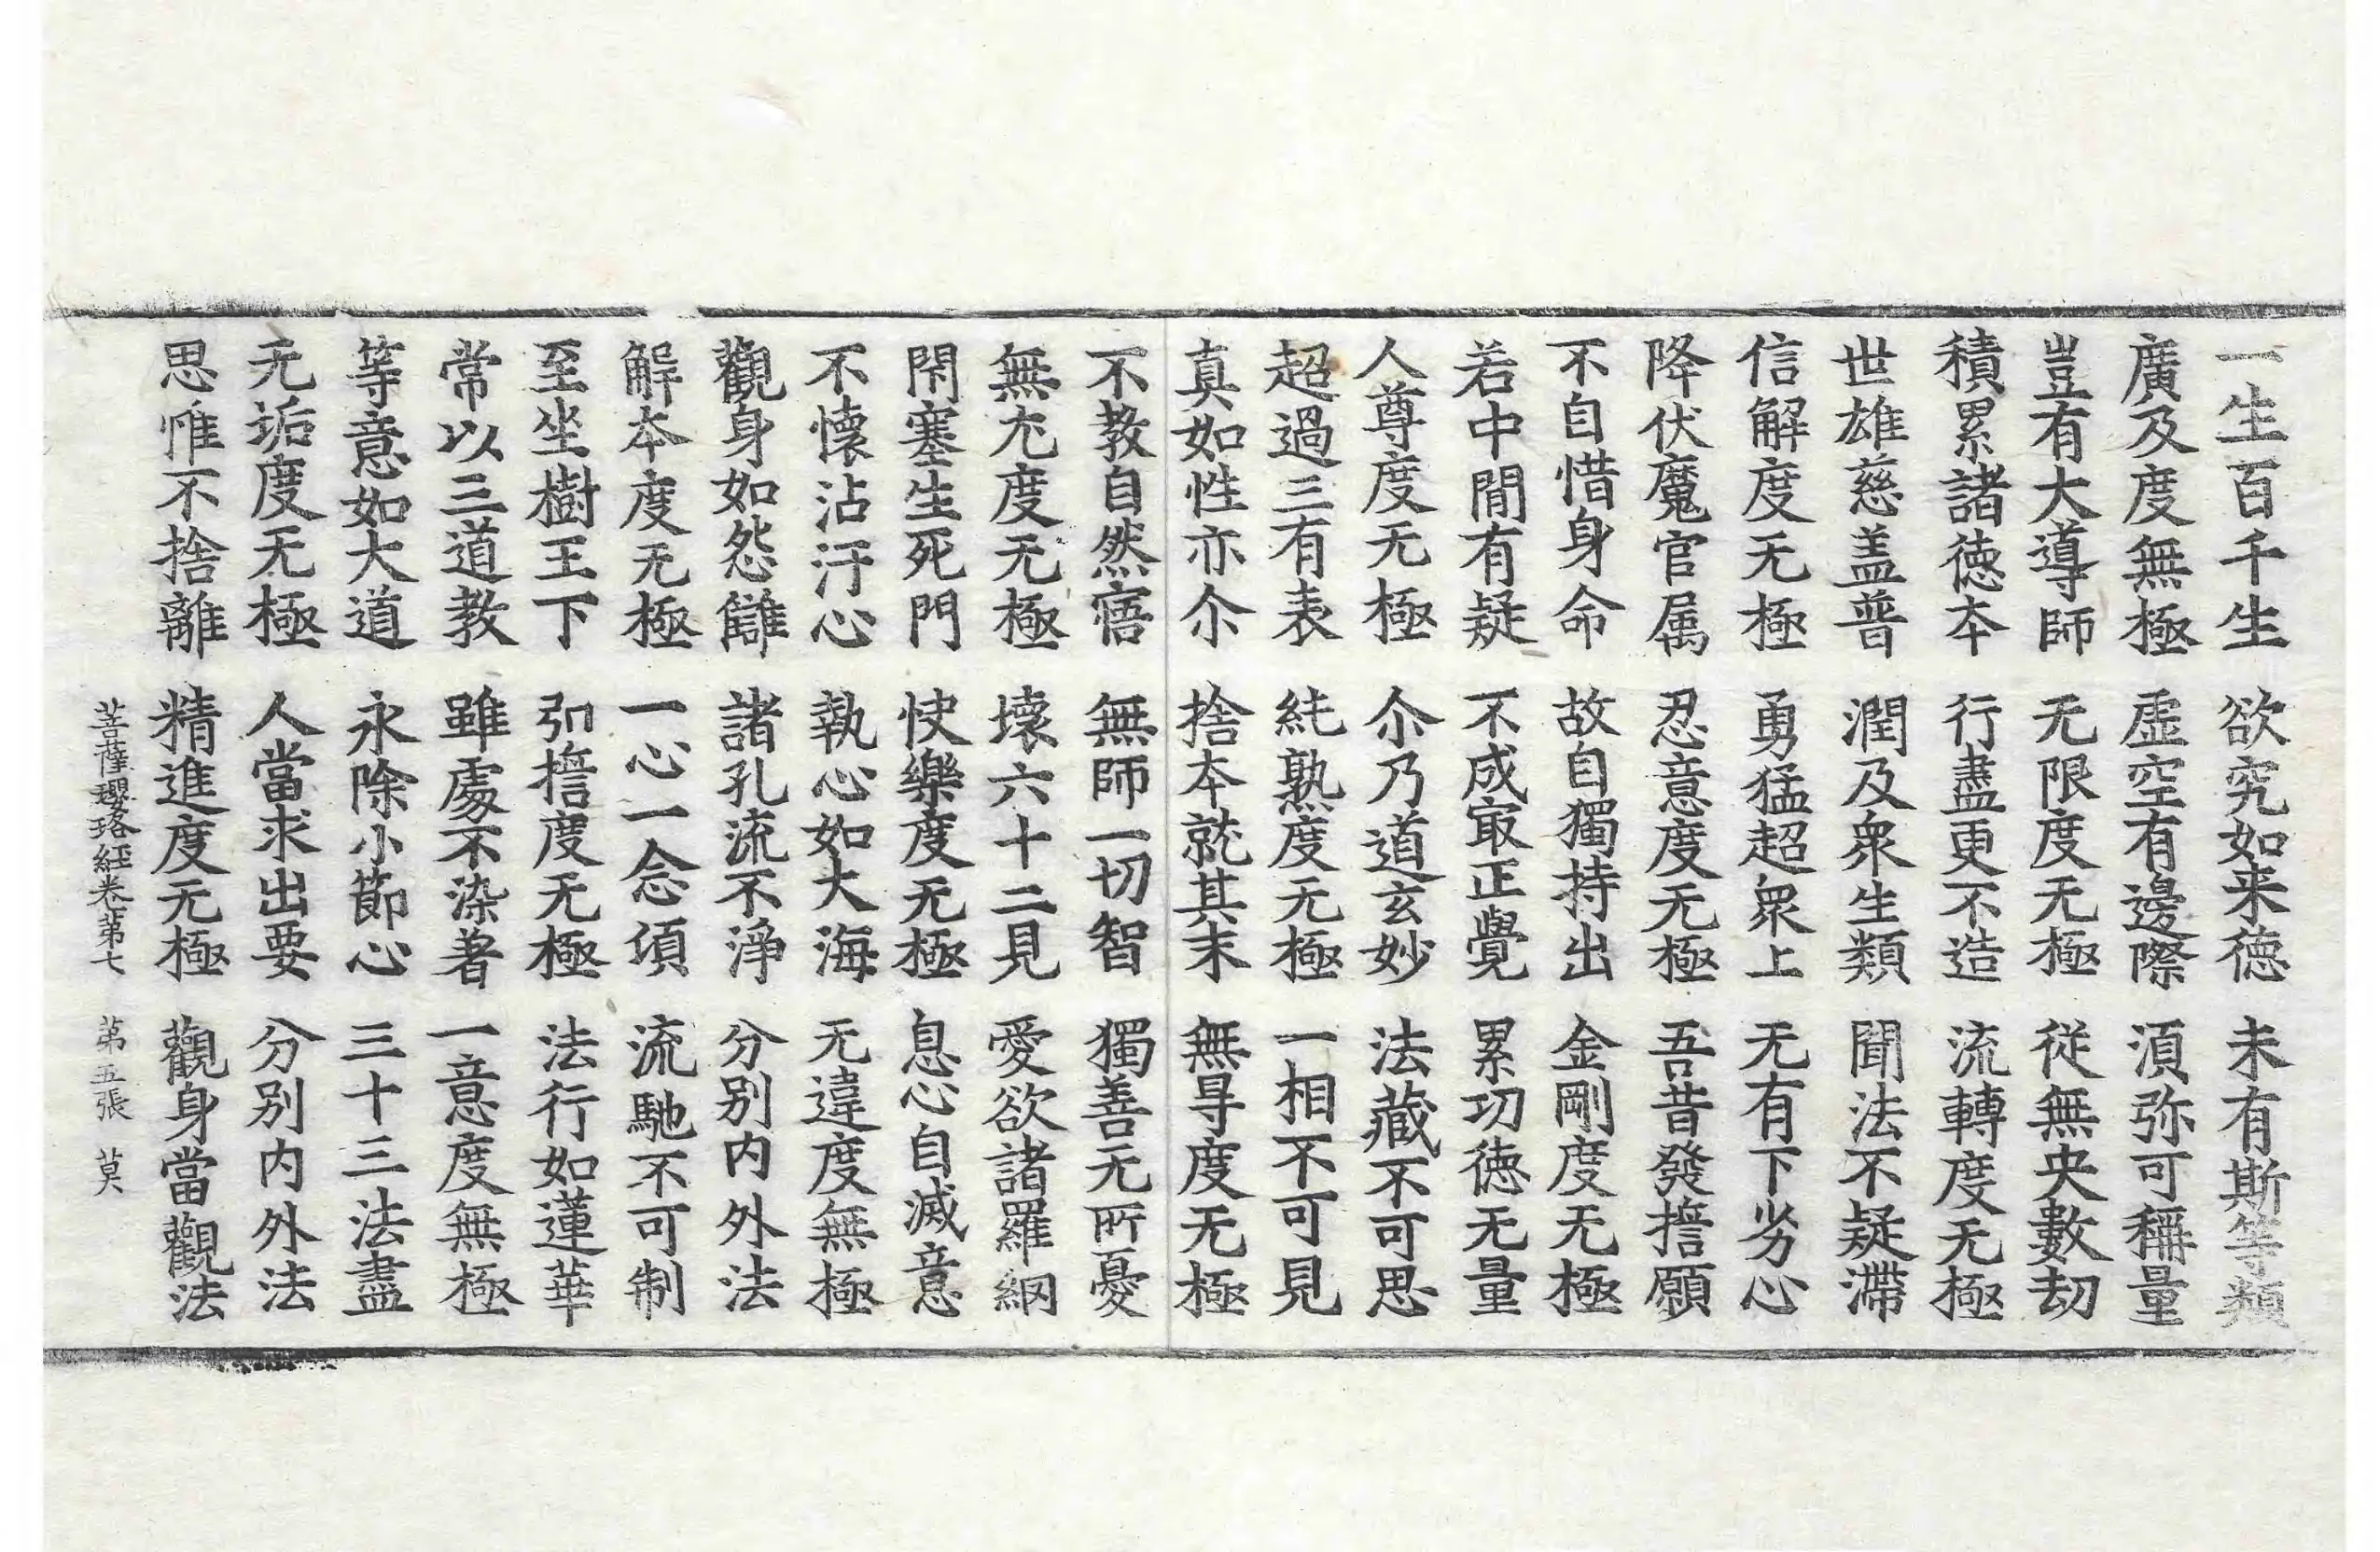 一生百千生 欲究如来德 未有斯等類
廣及度無極 虛空有邊際 湏弥可稱量
豈有大導師 无限度无極 從無央數劫
積累諸德本 行盡更不造 流轉度无極
世雄慈盖普 潤及衆生類 聞法不疑滯
信解度无極 勇猛超衆上 无有下劣心
降伏魔官属 忍意度无極 吾昔發擔願
不自惜身命 故自獨持出 金剛度无極
若中閒有疑 不成㝡正覺 累功德无量
人尊度无極 尒乃道玄妙 法藏不可思
超過三有表 純熟度无極 一相不可見
真如性亦尒 捨本就其末 無㝵度无極
不教自然寤 無師一切智 獨善无所憂
無尢度无極 壞六十二見 愛欲諸羅網
閇塞生死門 快樂度无極 息心自滅意
不懷沾汙心 執心如大海 无違度無極
觀身如怨讎 諸孔流不淨 分别内外法
解本度无極 一心一念湏 流馳不可制
至坐樹王下 弘擔度无極 法行如蓮華
常以三道教 雖處不染著 一意度無極
等意如大道 永除小節心 三十三法盡
无垢度无極 人當求出要 分别内外法
思惟不捨離 精進度无極 觀身當觀法
菩薩瓔珞經卷第七 第五張 莫